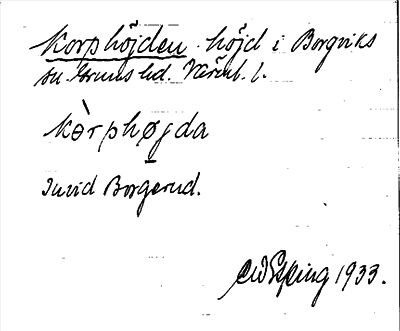 Korphöjden höjd i Borgviks
sn. Grums hd. Värml. l.
kòrphøjda
Invid Borgerud.
1933.